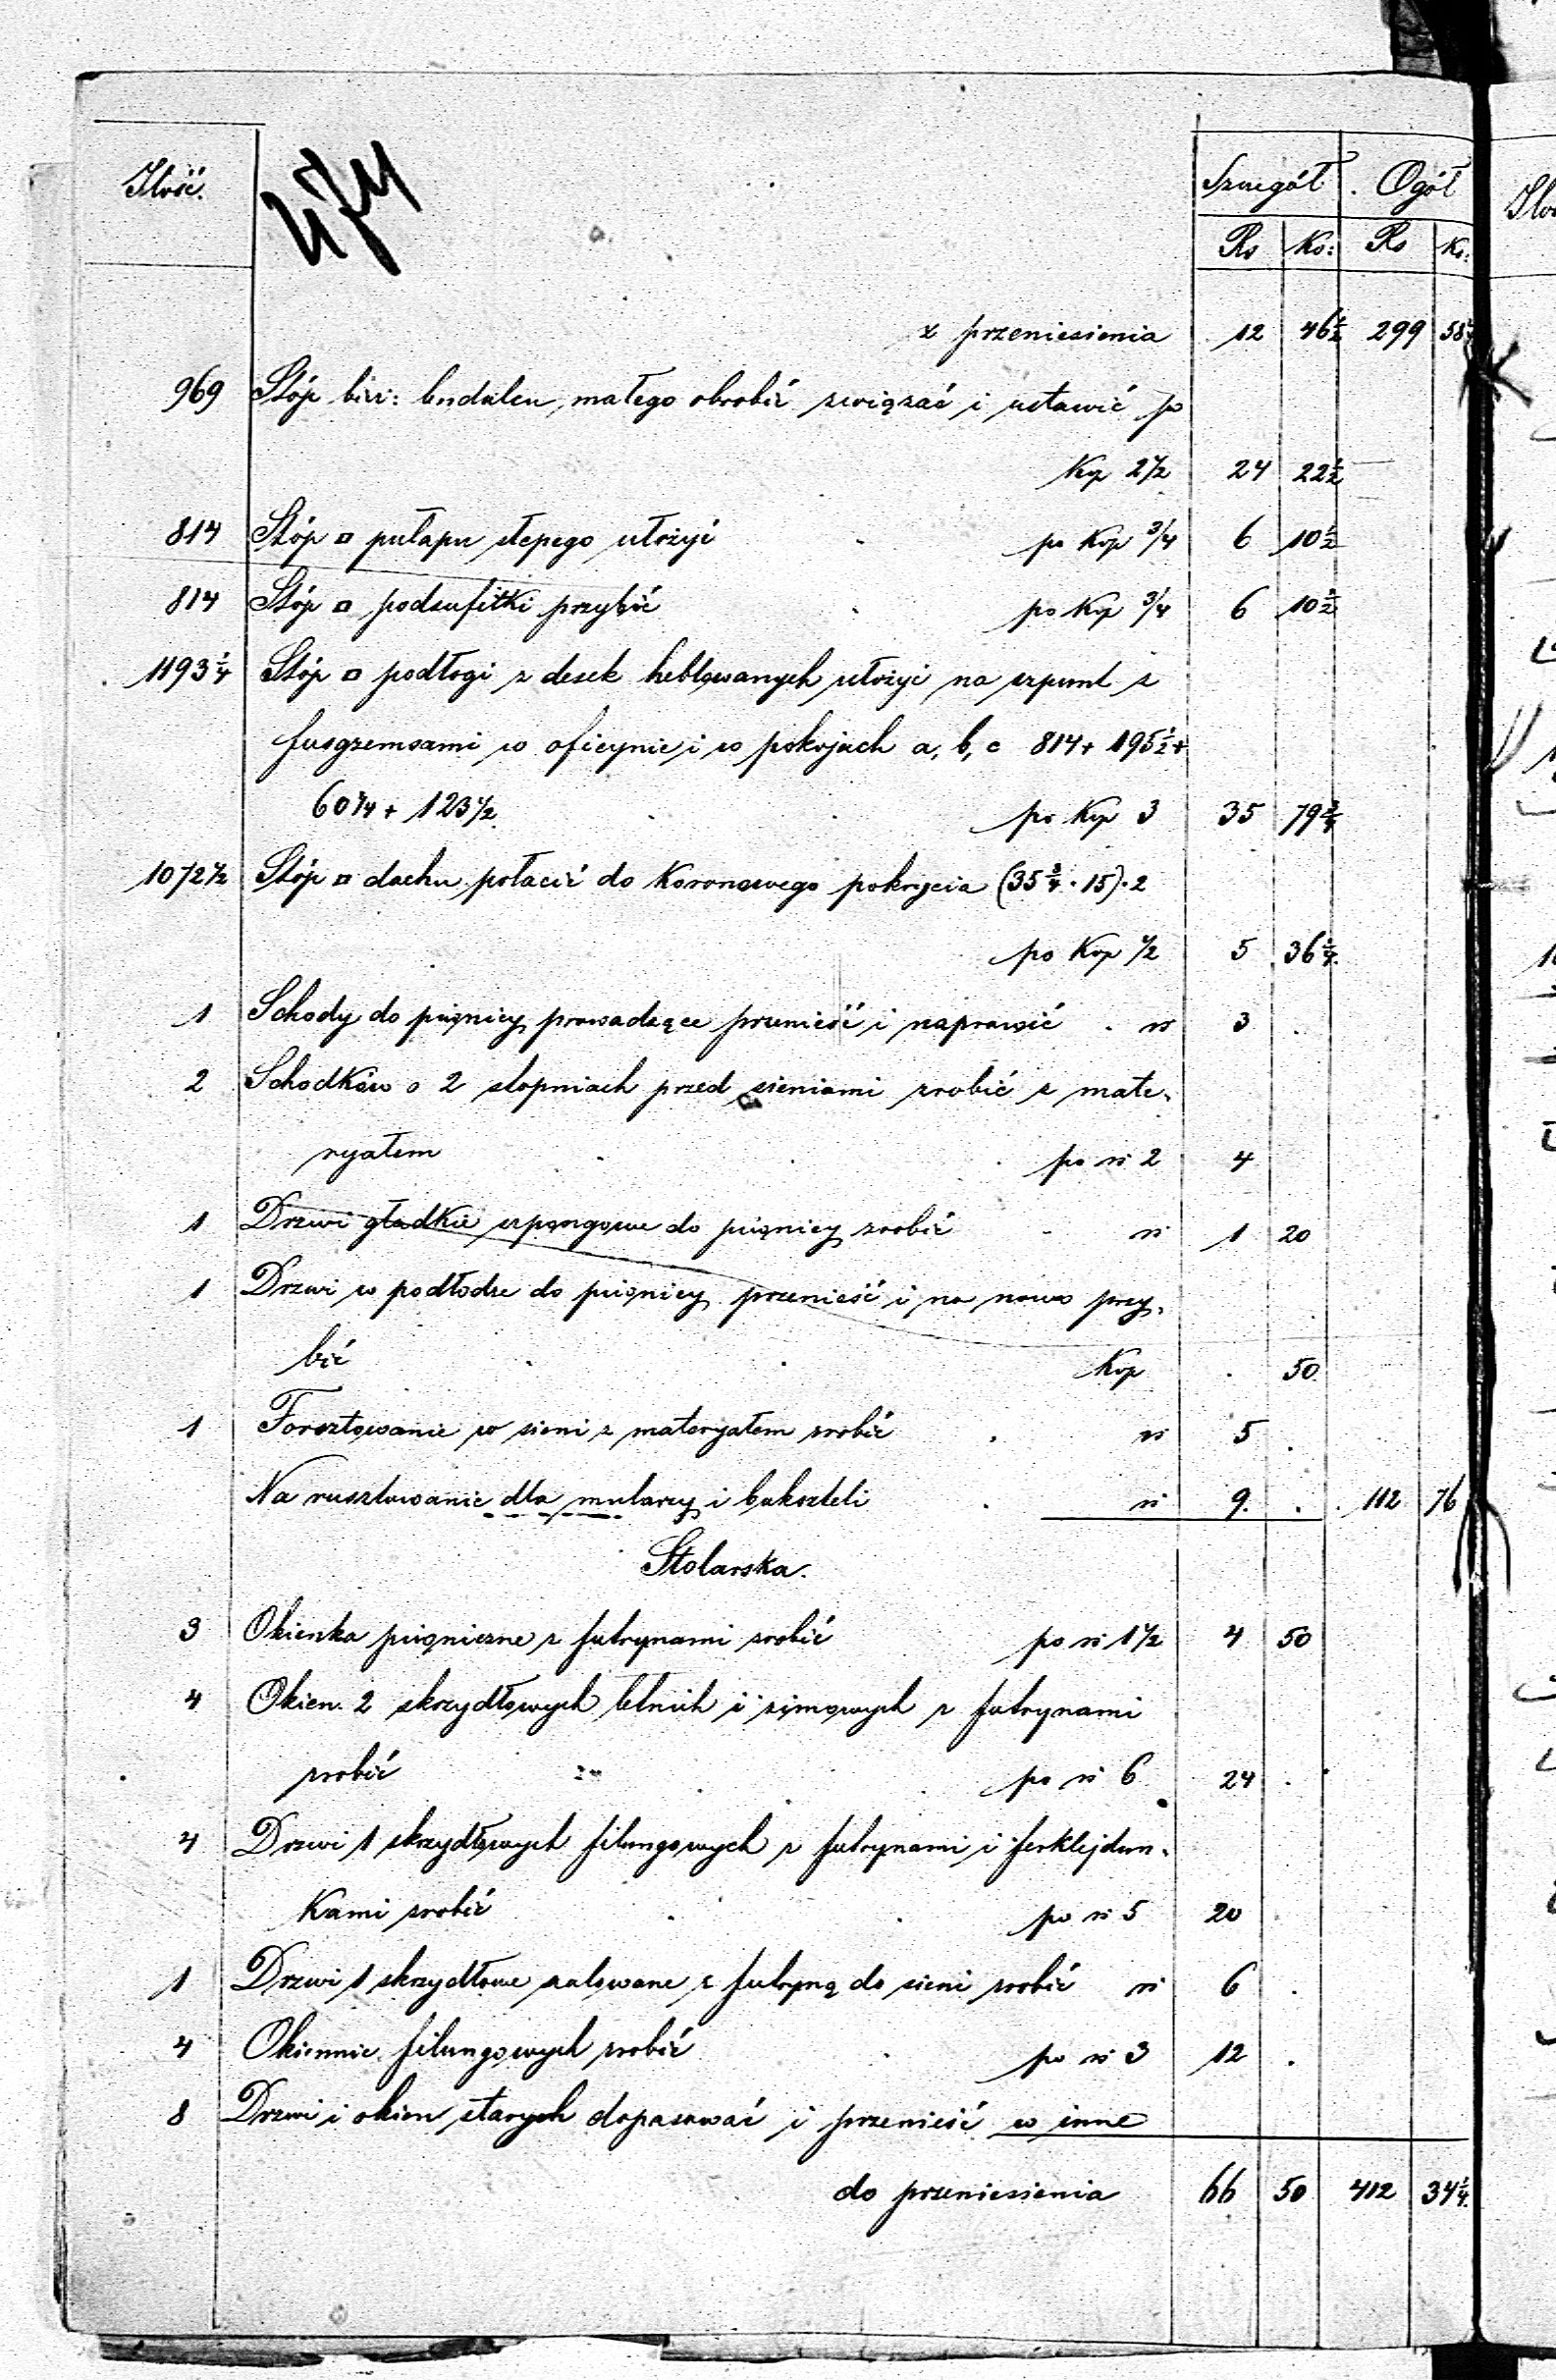 Ilość.
Szczegół. Ogół
Rs Ko: Rs Ko:
z przeniesienia 12 46½ 299 58
969 Stóp bież: budulcu małego obrobić związać i ustawić po
Kop 2½ 24 22½
814 Stóp □ pułapu ślepego ułożyć po Kop ¾ 6 10½
814 Stóp □ podsufitki przybić po Kop ¾ 6 10½
1193¼ Stóp □ podłogi z desek heblowanych ułożyć na szpunt z
fusgzemsami w oficynie i w pokojach a, b, c 814 + 195½ +
60¼ + 123½ po Kop 3 35 79¾
1072½ Stóp □ dachu połacić do Koronowego pokrycia (35¾ · 15) · 2
po Kop ½ 5 36¼
1 Schody do piwnicy prowadzące przenieść i naprawić rs 3
2 Schodków o 2 stopniach przed sieniami zrobić z mate-
ryałem po rs 2 4
1 Drzwi gładkie szpongowe do piwnicy zrobić rs 1 20
1 Drzwi w podłodze do piwnicy przenieść i na nowo przy-
bić Kop 50
1 Forsztowanie w sieni z materyałem zrobić rs 5
Na rusztowanie dla mularzy i bukszteli rs 9. 112 76
Stolarska.
3 Okienka piwniczne z futrynami zrobić po rs 1½ 4 50
4 Okien 2 skrzydłowych letnich i zimowych z futrynami
zrobić po rs 6 24
4 Drzwi 1 skrzydłowych filungowych z futrynami i ferklejdun-
Kami zrobić po rs 5 20
1 Drzwi 1 skrzydłowe szalowane z futryną do sieni zrobić rs 6
4 Okiennic filungowych zrobić po rs 3 12
8 Drzwi i okien starych dopasować i przenieść w inne
do przeniesienia 66 50 412 34¼